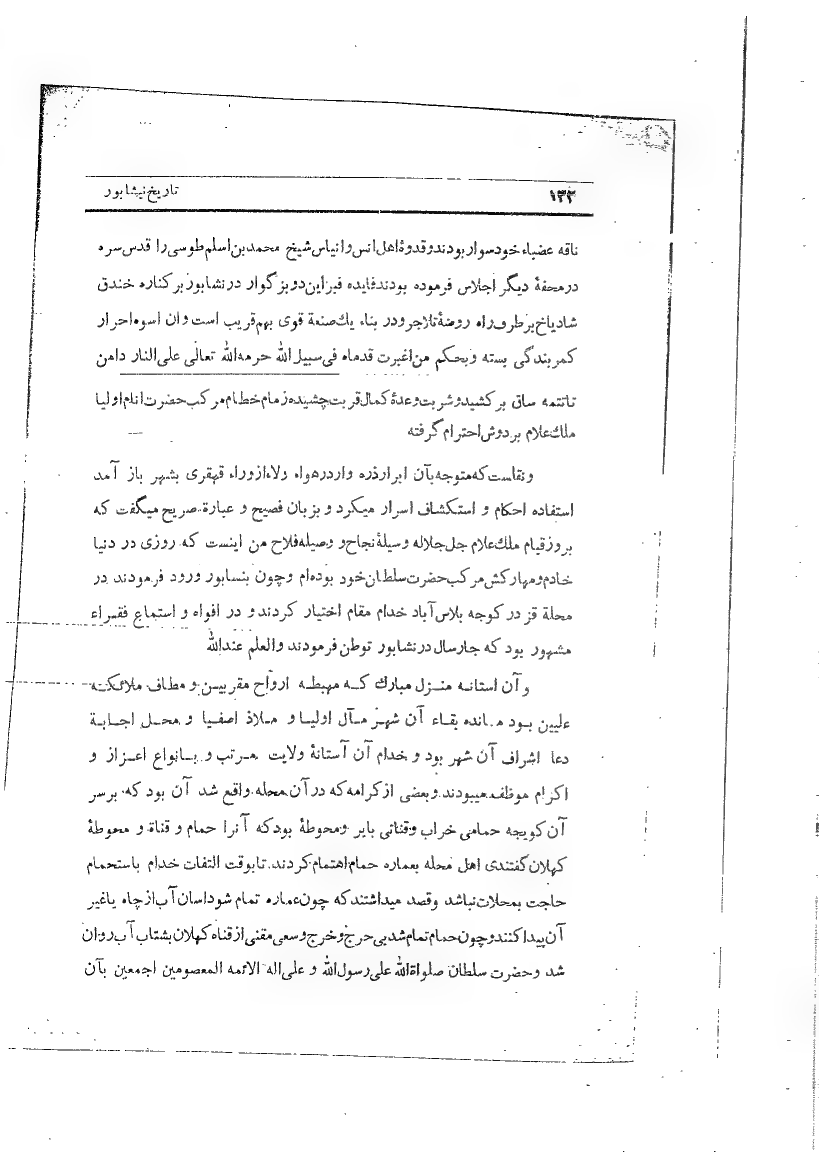 ۱۳۲ تاریخ نیشابور
ناقه عضباء خود سوار بودند و قدوهٔ اهل انس و انیاس شیخ محمد بن اسلم طوسی را قدس سره
در محفهٔ دیگر اجلاس فرموده بودند فایده قبر این دو بزگوار در نشابور بر کناره خندق
شادیاخ بر طرف راه روضهٔ تلاجرو در بناء یك صنعة قوی بهم قریب است وان اسوه احرار
کمر بندگی بسته و بحکم من اغبرت قدماه فی سبیل الله حرمه الله تعالی علی النار دامن
تا تتمه ساق بر کشید و شربت وعدهٔ کمال قربت چشیده زمام خطام مرکب حضرت انام اولیا
ملك علام بر دوش احترام گرفته
و نقلست که متوجه بآن ابرار ذره وار در هواء ولاء از وراء قهقری بشهر باز آمد
استفاده احکام و استکشاف اسرار میکرد و بزبان فصیح و عبارة صریح میگفت که
بروز قیام ملك علام جل جلاله وسیلهٔ نجاح و وصیله فلاح من اینست که روزی در دنیا
خادم و مهارکش مرکب حضرت سلطان خود بوده‌ام و چون بنسابور ورود فرمودند در
محلة قز در کوجه بلاس آباد خدام مقام اختیار کردند و در افواه و استماع فقراء
مشهور بود که جار سال در نشابور توطن فرمودند والعلم عندالله
و آن استانه منزل مبارك که مهبطه ارواح مقربین و مطاف ملائکه
علیین بود مانده بقاء آن شهر مآل اولیا و ملاذ اصفیا و محل اجابة
دعا اشراف آن شهر بود و خدام آن آستانهٔ ولایت مرتب و بانواع اعزاز و
اکرام موظف میبودند و بعضی از کرامه که در آن محله واقع شد آن بود که برسر
آن کویجه حمامی خراب و قناتی بایر و محوطهٔ بود که آنرا حمام و قناة و محوطهٔ
کهلان گفتندی اهل محله بعماره حمام اهتمام کردند. تا بوقت التفات خدام باستحمام
حاجت بمحلات نباشد و قصد میداشتند که چون عماره تمام شود اسان آب از چاه یا غیر
آن پیدا کنند و چون حمام تمام شد بی حرج و خرج و سعی مقنی از قناه کهلان بشتاب آب روان
شد و حضرت سلطان صلواة الله علی رسول الله و علی اله الائمه المعصومین اجمعین بآن